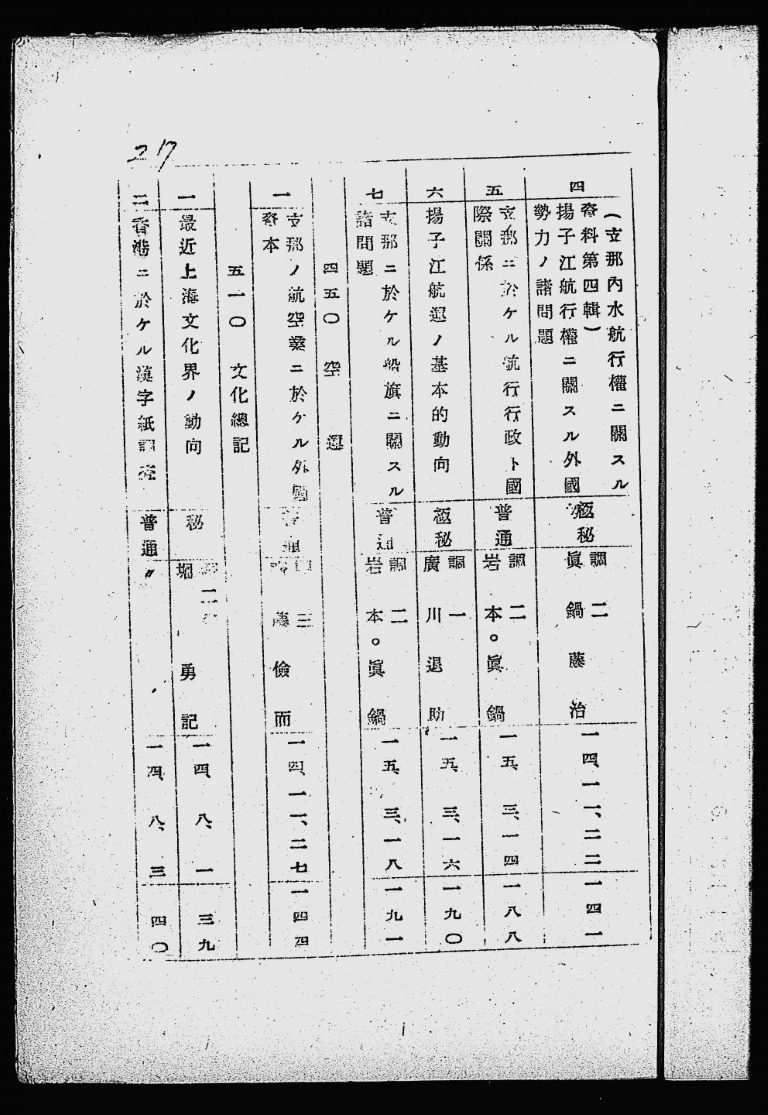 27
四
(支那內水航行權ニ關スル
資料第四輯)
揚子江航行權ニ關スル外國
勢力ノ諸問題
極秘
調二
眞鍋藤治
一四、一一、二二
一四一
五
支那ニ於ケル航行行政ト國
際關係
普通
調二
岩本。眞鍋
一五、三、一四
一八八
六
揚子江航運ノ基本的動向
極秘
調一
廣川退助
一五、三、一六
一九〇
七
支那ニ於ケル船旗ニ關スル
諸問題
普通
調二
岩本。眞鍋
一五、三、一八
一九一
四五〇 空運
一
支那ノ航空業ニ於ケル外國
資本
普通
三
儉而
一四、一一、二七
一四四
五一〇 文化總記
一
最近上海文化界ノ動向
秘
堀勇記
一四、八、一
三九
二
香港ニ於ケル漢字紙調査
普通
〃
一四、八、三
四〇